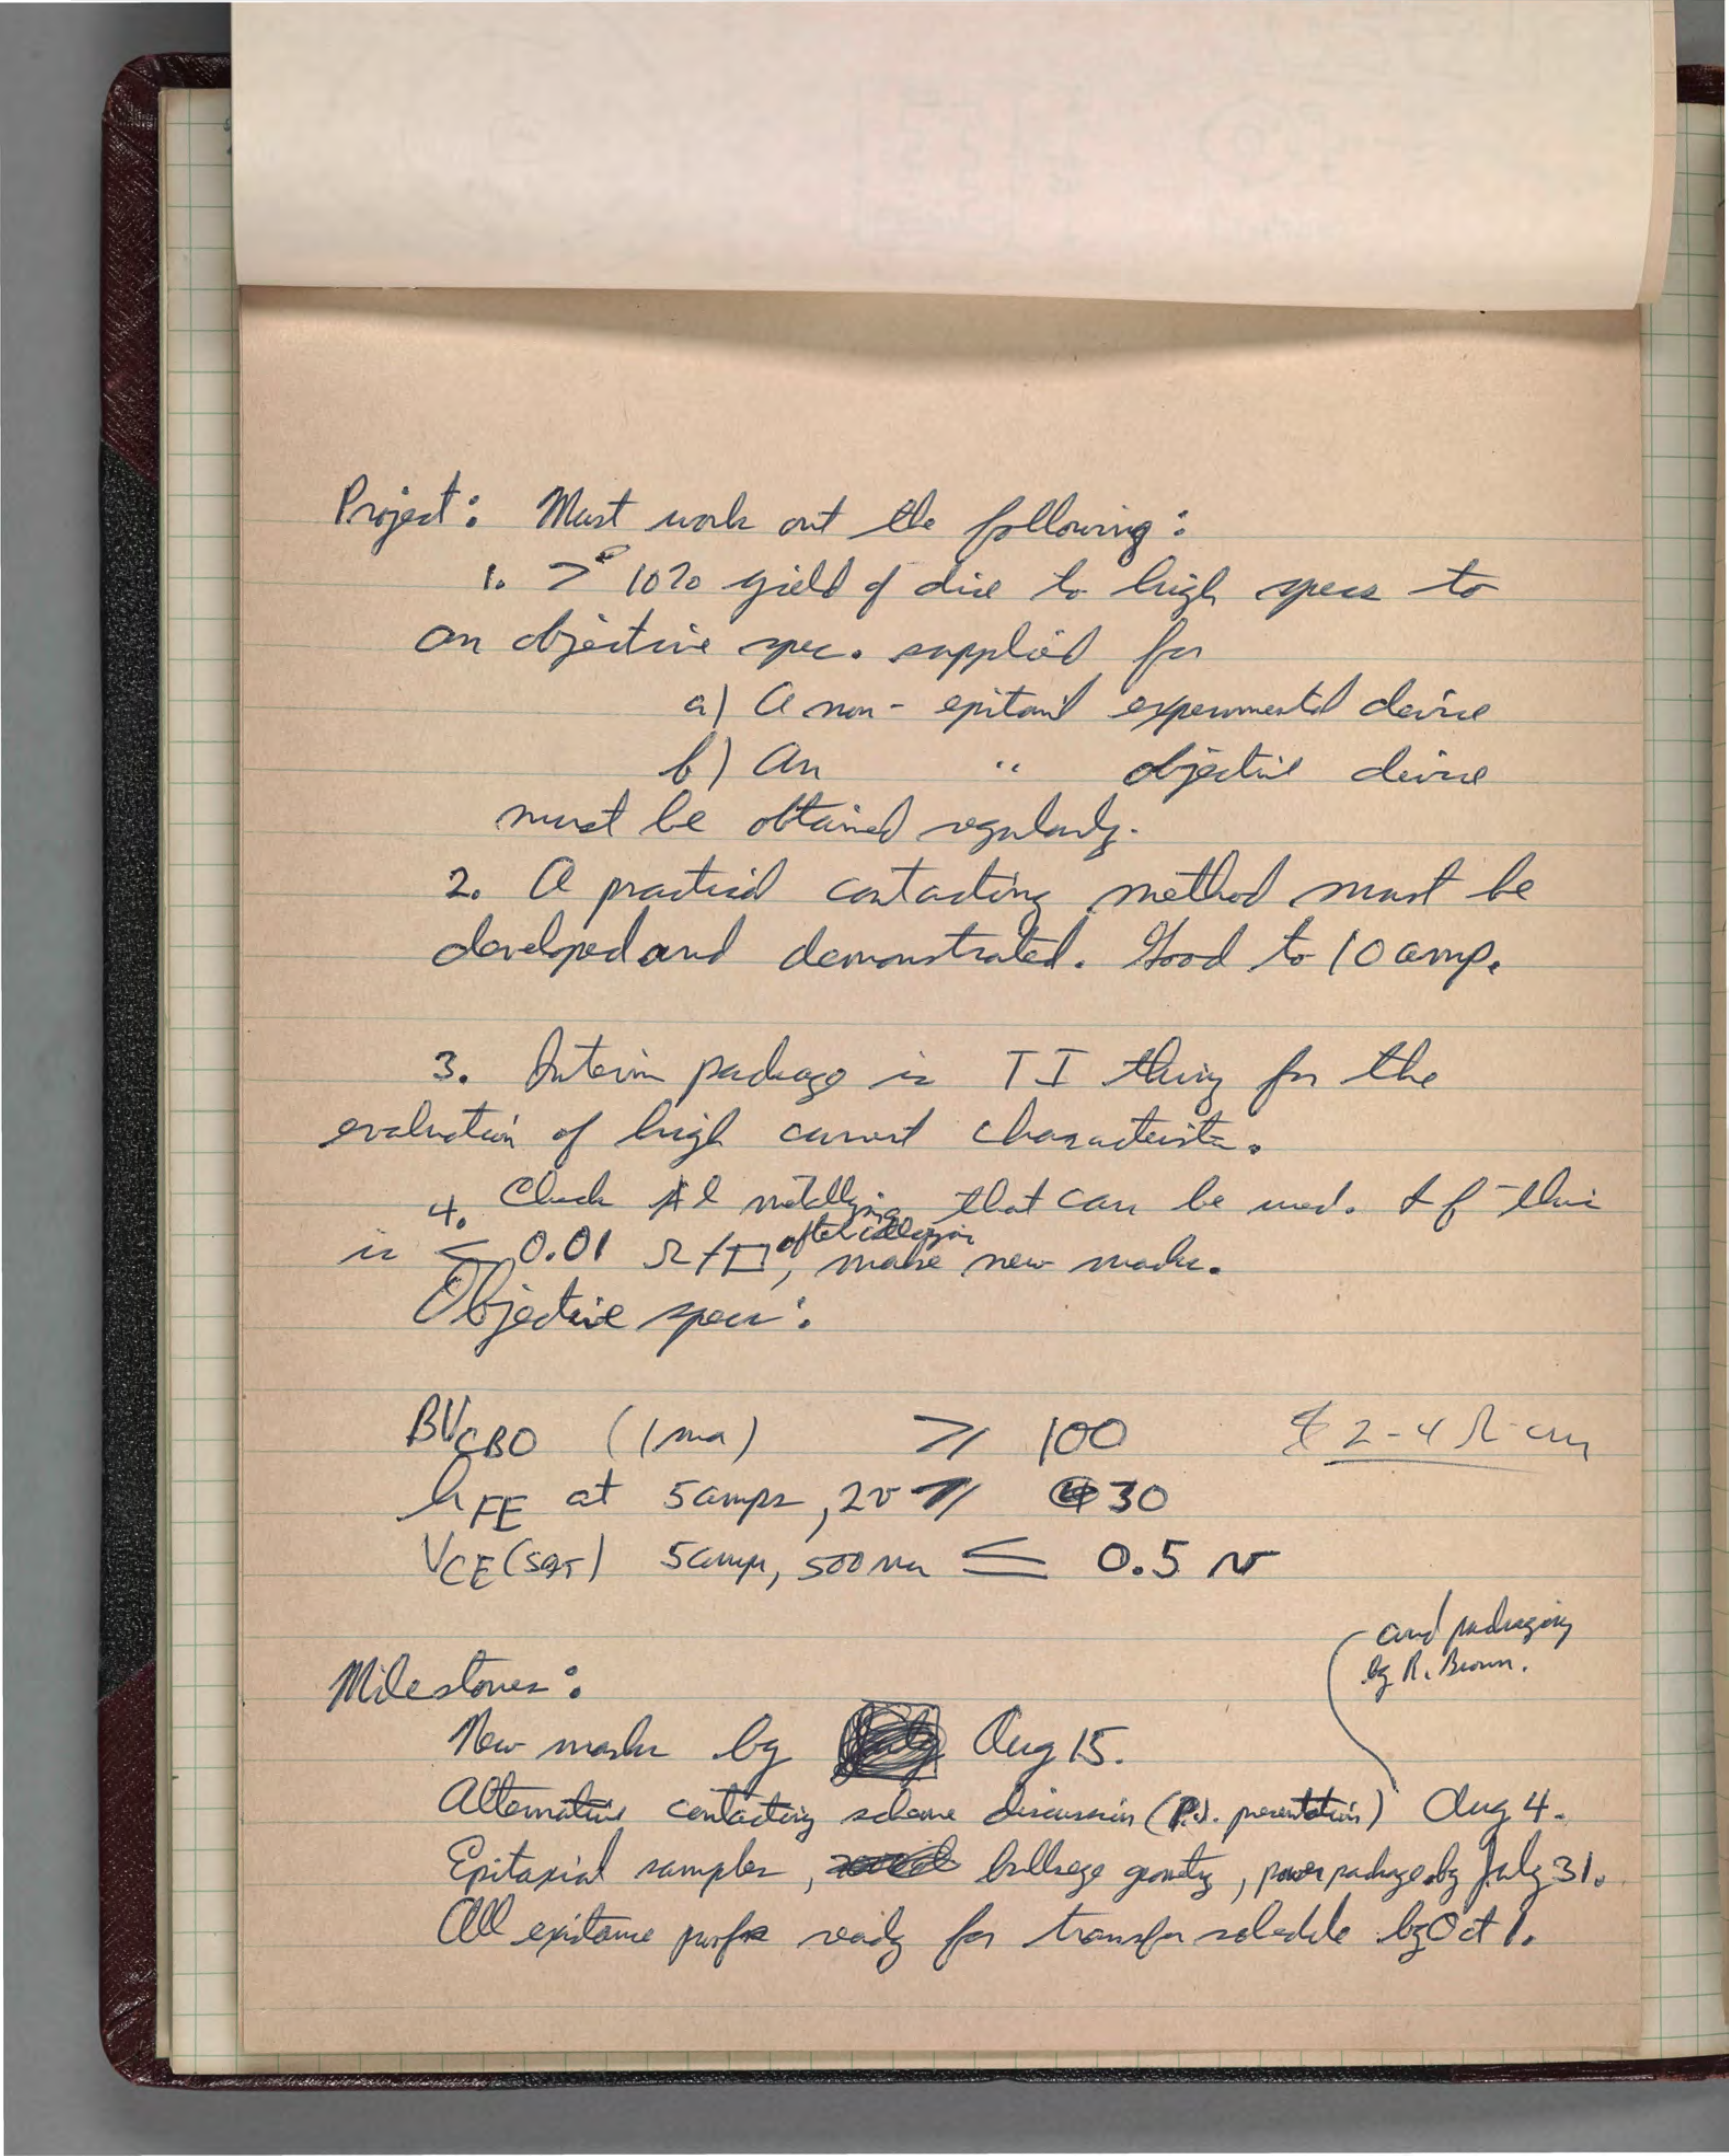 Project: Must work out the following:
1. > 10% yield of dice to high specs to
an objective spec. supplied for
a) A non-epitaxial experimental device
b) An " objective device
must be obtained regularly.
2. A practical contacting method must be
developed and demonstrated. Good to 10 amp.
3. Interim package is TI thing for the
evaluation of high current characterist.
4. Check Al metallizing that can be used. If this
is ≤ 0.01 Ω/□ after alloying, make new masks.
Objective specs:
BVCBO (1 ma) ≥ 100 2-4 Ω-cm
hFE at 5 amps, 2v ≥ 30
VCE (SAT) 5 amps, 500 ma ≤ 0.5 v
and packaging
by R. Brown.
Milestones:
New masks by Aug 15.
Alternative contacting scheme discussion ( presentation) Aug 4.
Epitaxial samples, bullseye geometry, power package by July 31.
All ready for transfer by Oct 1.